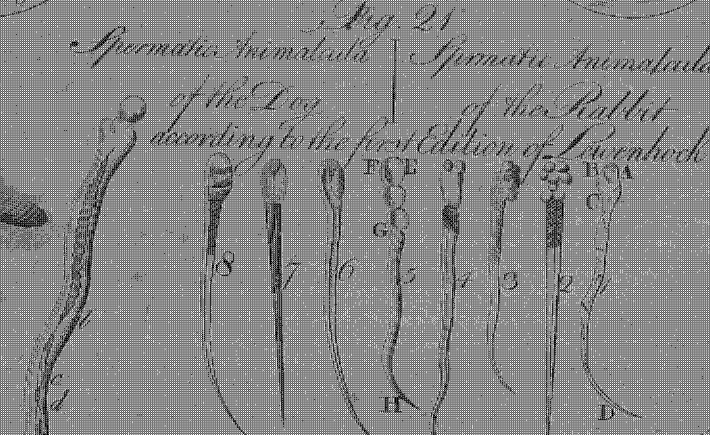 Fig. 21
Spermatic Animalcula
of the Dog
Spmatic Animalcula
of the Rabbit
according to the first Edition of Lewenhoeck
F E
B A
C
G
8 7 6 5 4 3 2 1
b
c
d
H
D